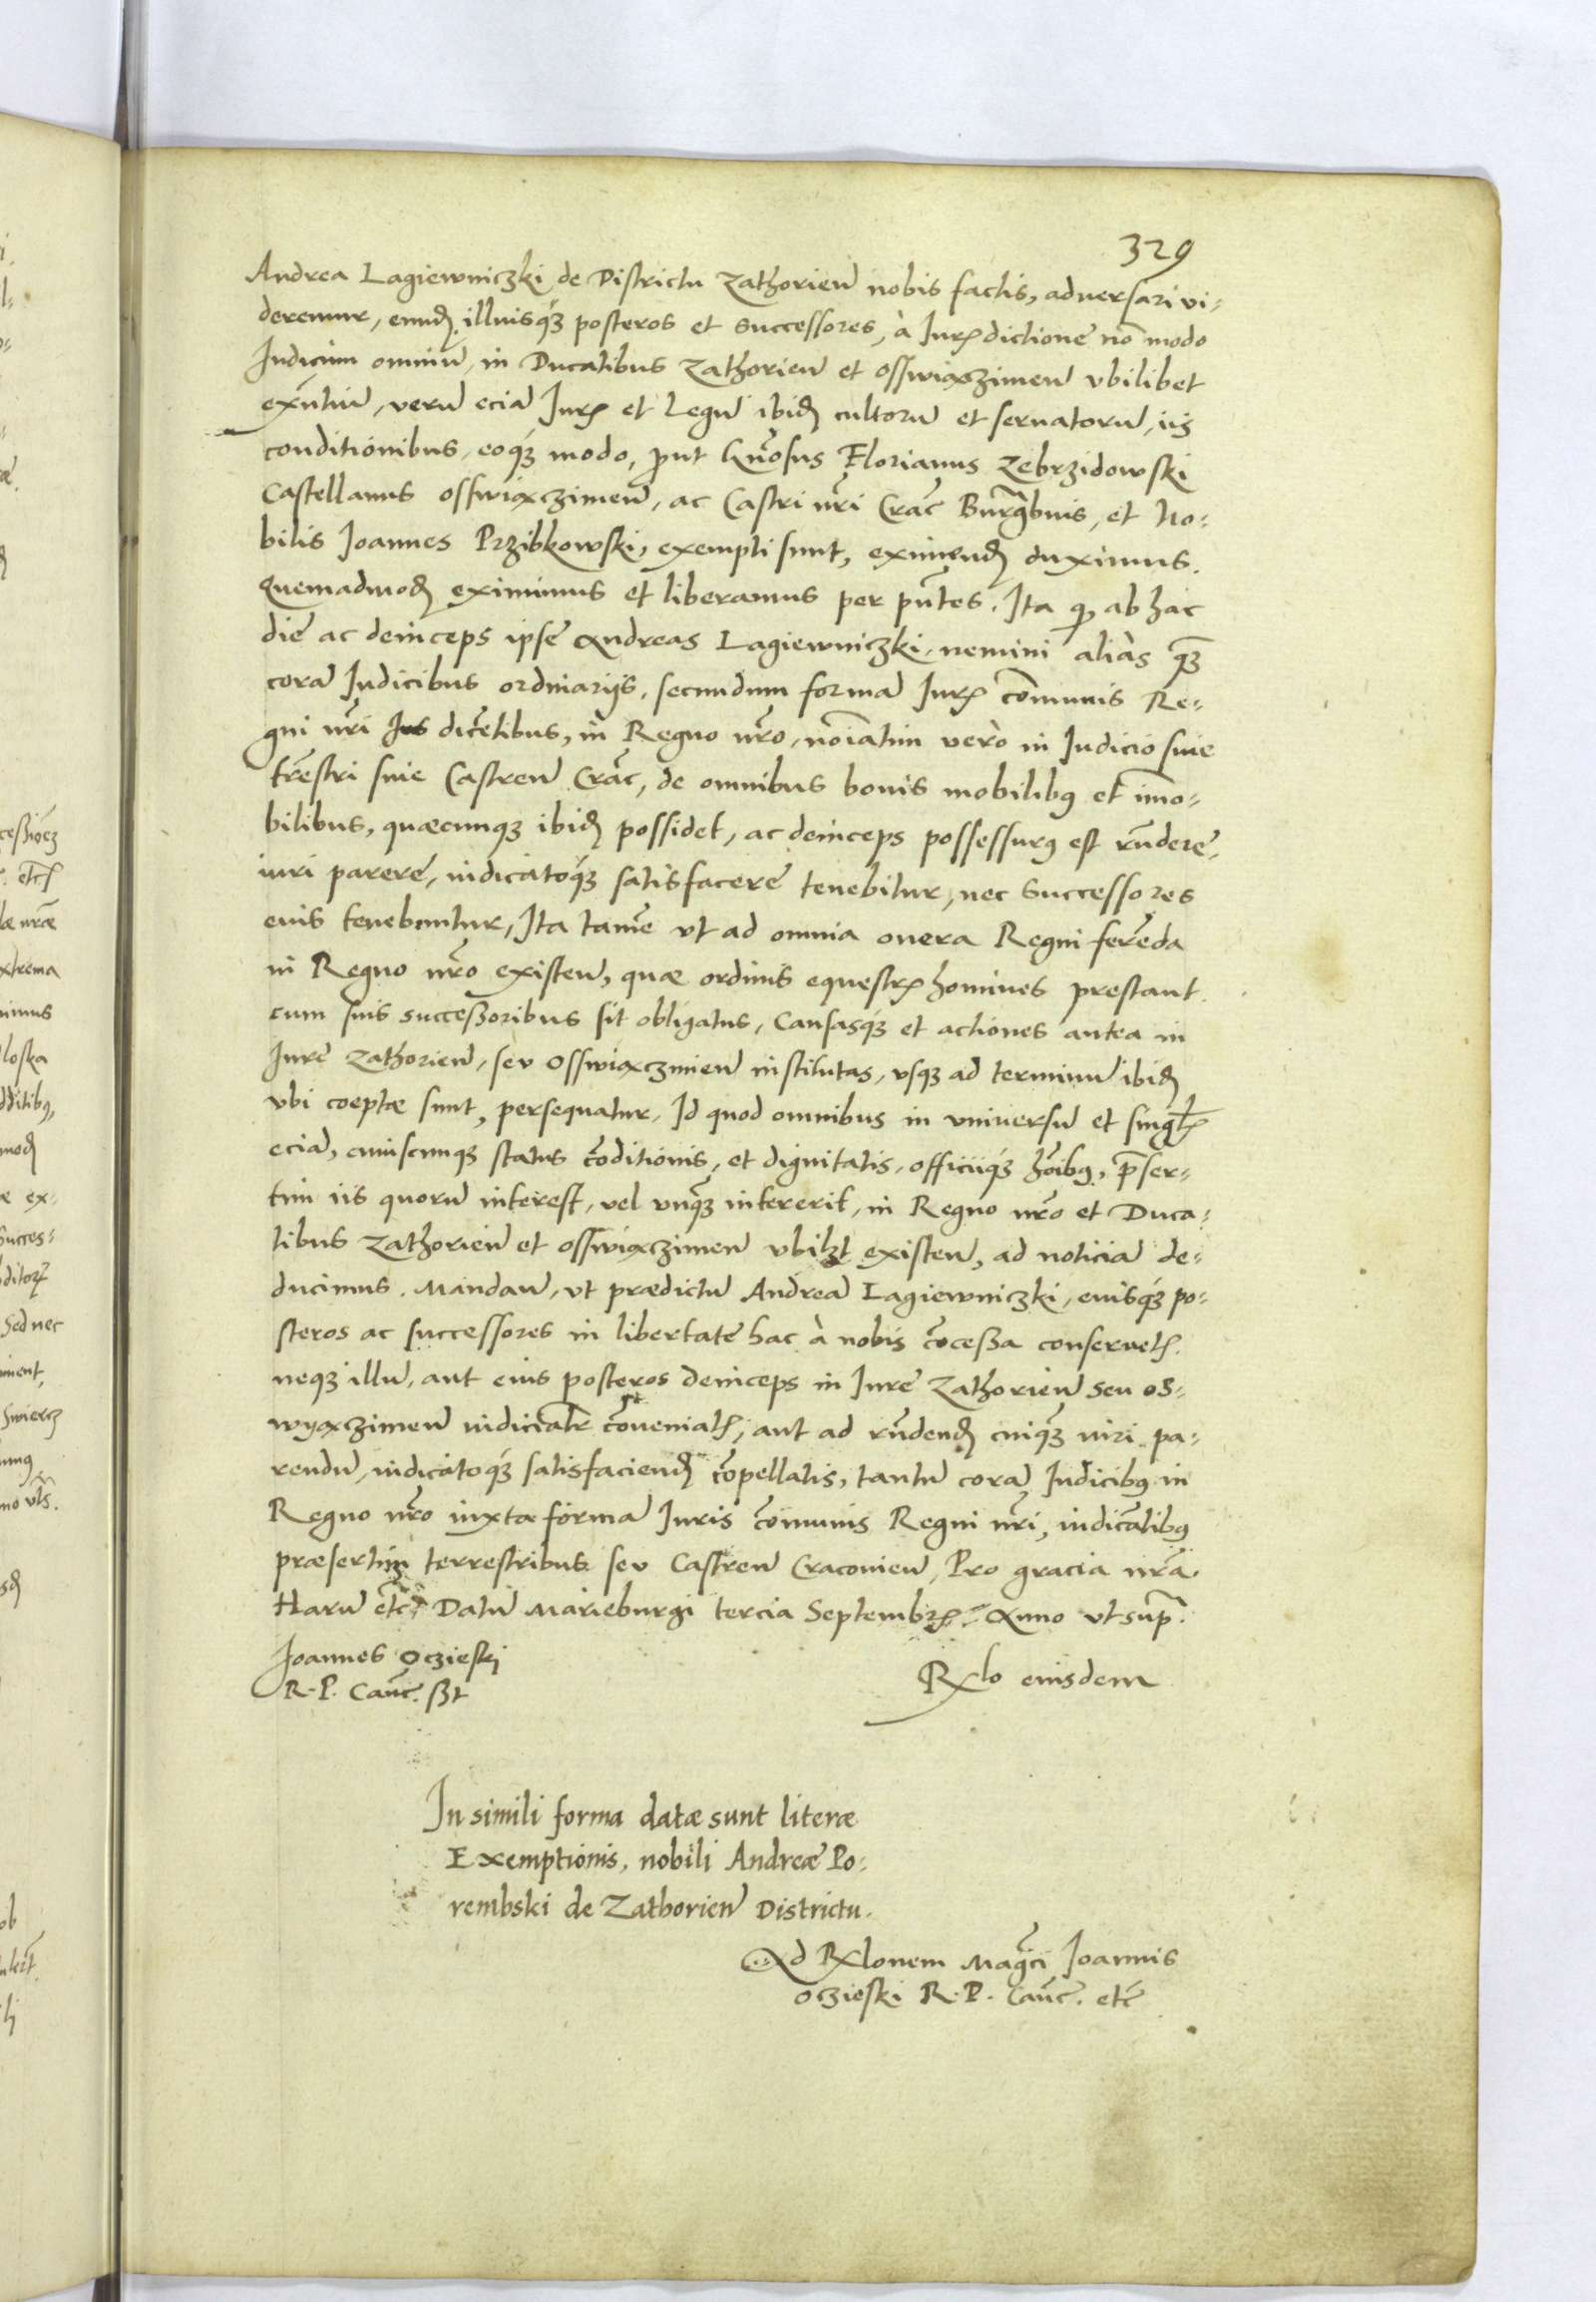 329
Andrea Lagiewniczki de Districtu Zathorien̄ nobis factis, aduersari vi-
deremur, eund illuisq́ʒ posteros et successores, à Jurꝭdictione no̅ modo
Judicum omniu̅, in Ducatibus Zathorien̄ et osswiaxzimen̄ vbilibet
exn̄tiu̅, veru̅ ecia̅ Jurꝭ et Legu̅ ibid cultoru̅ et seruatoru̅, iis
conditionibus, eoq́ʒ modo, put Gn̄osus Florianus Zebrzidowski
Castellanus osswiaxczimen̄, ac Castri nr̄i Crac̄ Burgr̄abius, et No-
bilis Joannes Przibkowski, exempti sunt, eximend duximus.
Quemadmod eximimus et liberamus per pn̄tes. Ita ꝙ ab hac
die ac deinceps ipse Andreas Lagiewniczki, nemini alias qʒ̄
cora̅ Judicibus ordinarijs, secundum forma̅ Jurꝭ co̅munis Re-
gni nr̄i Jus dicen̄tibus, in Regno nr̄o, no̅iatim vero in Judicio siue
trēstri siue Castren̄ Crac̄, de omnibus bonis mobilibꝰ et im̅o-
bilibus, quæcunqʒ ibid possidet, ac deinceps possessurꝰ est rn̄dere,
iuri parere, iudicatoq́ʒ satisfacere tenebitur, nec successores
euis tenebuntur, Ita tame̅ vt ad omnia onera Regni fere̅da
in Regno nr̄o existen̄, quæ ordinis equestrꝭ homines prestant.
cum suis successoribus sit obligatus, Causasq́ʒ et actiones antea in
Jure Zathorien̄, seu Osswiaxczimen̄ institutas, vsqʒ ad terminu̅ ibid
vbi coeptæ sunt, persequatur. Id quod omnibus in vniuersu̅ et singl̄ꝭ
ecia̅, cuiuscunqʒ status co̅ditionis, et dignitatis, officiiq́ʒ ho̅ibꝰ, p̅ser-
tim iis quoru̅ interest, vel vnqʒ̄ intererit, in Regno nr̄o et Duca-
tibus Zathorien̄ et osswiaxczimen̄ vbilʒt existen̄, ad noticia̅ de-
ducimus. Mandan̄, vt prædictu̅ Andrea̅ Lagiewniczki, euisq́ʒ po-
steros ac successores in libertate hac à nobis co̅cessa conseruetꝭ.
neqʒ illu̅, aut eius posteros deinceps in Jure Zathorien̄ seu os-
wyaxczimen̄ iudicialr̄ co̅ueniatꝭ, aut ad rn̄dend cuiqʒ̄ iuri pa-
rendu̅, iudicatoq́ʒ satisfaciend co̅pellatis, tantu̅ cora̅ Judicibꝰ in
Regno nr̄o iuxta forma̅ Juris co̅munis Regni nr̄i, iudican̄tibꝰ
præsertim terrestribus seu Castren̄ Cracouien̄, Pro gracia nr̄a.
Haru̅ etc̄ Datu̅ Marieburgi tercia Septembrꝭ. Anno vt sup̄.
Joannes Oczieski
R. P. Canc̄. sst
Rxlo eiusdem
In simili forma datæ sunt literæ
Exemptionis, nobili Andreæ Po-
rembski de Zathorien̄ Districtu.
Ad Rxlonem Magc̄i Joannis
Oczieski R. P. Canc̄. etc̄